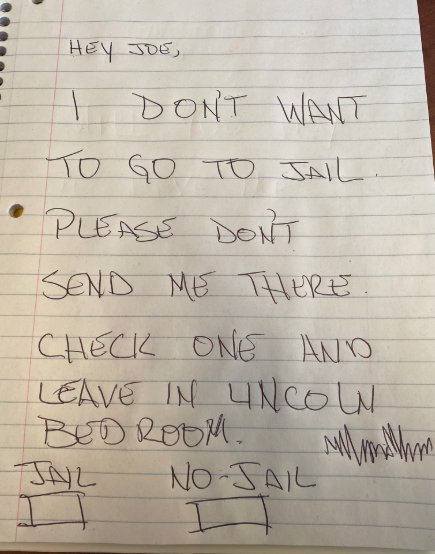 HEY JOE,
I DON'T WANT
TO GO TO JAIL.
PLEASE DON'T
SEND ME THERE.
CHECK ONE AND
LEAVE IN LINCOLN
BEDROOM.
JAIL NO-JAIL